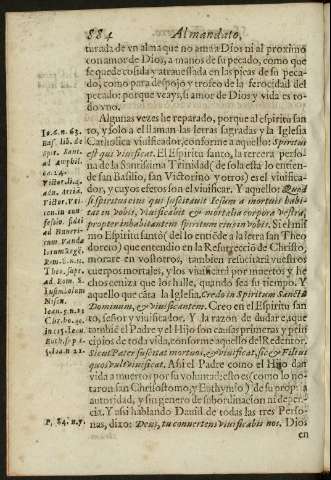 884 Al mandato,
turada de vn alma que no ama a Dios ni al proximo
con amor de Dios, a manos de su pecado, como que
se quede cosida y atrauessada en las picas de su peca-
do, como para despojo y trofeo de la ferocidad del
pecado: porque veays, si amor de Dios y vida es to-
do vno.
Algunas vezes he reparado, porque al espiritu san
to, y solo a el llaman las letras sagradas y la Iglesia
Catholica viuificador, conforme a aquello: Spiritus
est qui viuificat. El Espiritu santo, la tercera perso-
na de la Santissima Trinidad, de sola esta lo entien-
de san Basilio, san Victorino y otros) es el viuifica-
dor, y cuyos efetos son el viuificar. Y aquello: Quòd
si spiritus eius qui suscitauit Iesum a mortuis habi-
tat in vobis, viuificabit & mortalia corpora vestra,
propter inhabitantem spiritum eius in vobis. Si el mis
mo Espiritu santo (de lo entiẽde a la letra san Theo
doreto) que entendio en la Resurreccio de Christo,
morare en vosotros, tambien resucitarà vuestros
cuerpos mortales, y los viuificarà por muertos y he
chos ceniza que los halle, quando sea su tiempo. Y
aquello que cãta la Iglesia, Credo in Spiritum Sanctũ
Dominum, & viuificantem. Creo en el Espiritu san
to, señor y viuificador. Y la razon de dudar es, que
tambiẽ el Padre y el Hijo son causas primeras y prin
cipios de toda vida, conforme aquello del Redentor,
Sicut Pater suscitat mortuos, & viuificat, sic & Filius
quos vult viuificat. Assi el Padre como el Hijo dan
vida a muertos por su voluntad: esto es (como lo no-
taron san Chrisostomo, y Euthymio) de su propria
autoridad, y sin genero de subordinacion ni depen-
cia. Y assi hablando Dauid de todas las tres Perso-
nas, dixo: Deus, tu conuertens viuificabis nos. Dios
en
Io. 6. n. 63.
Bas. lib. de
Ad Amphil.
ca. 24.
Rom. 8. n. 11.
Ioan. 5. n. 21
P. 84. n. 7.